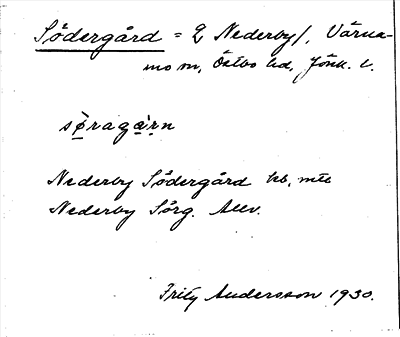 Södergård = 2 Nederby/, Värna-
mo sn, Östbo hd, Jönk. l.
sø̀raga̱ṛn
Nederby Södergård kb, mtb
Nederby Sörg.
Fritz Andersson 1930.